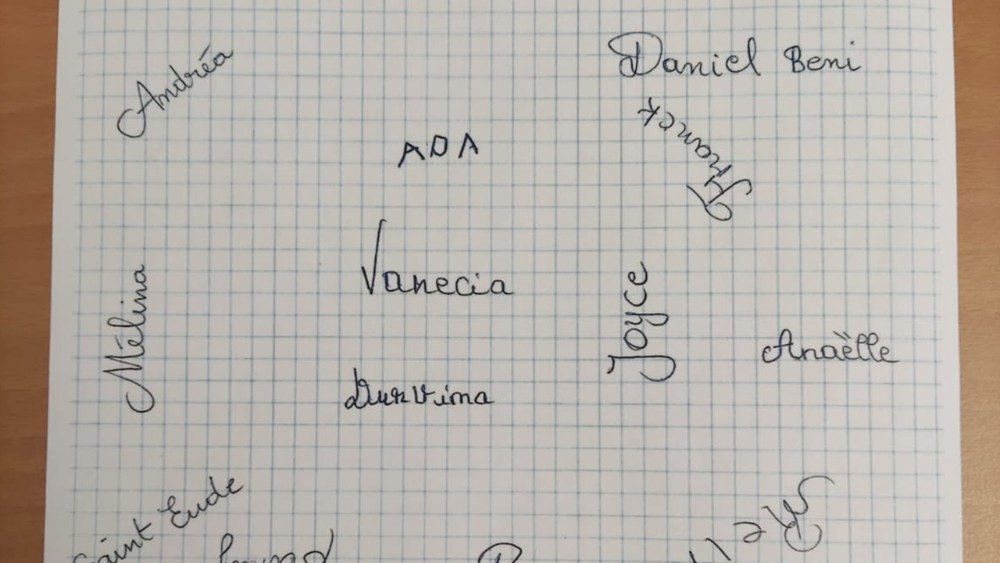 Andréa
Daniel Beni
ADA
Franck
Vanecia
Mélina
Joyce
Anaëlle
Durvima
Saint Eude